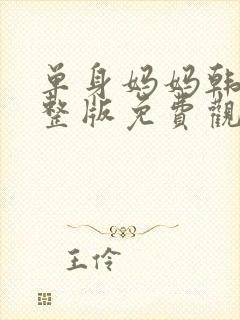 单身妈妈韩
整版免費觀
王伶